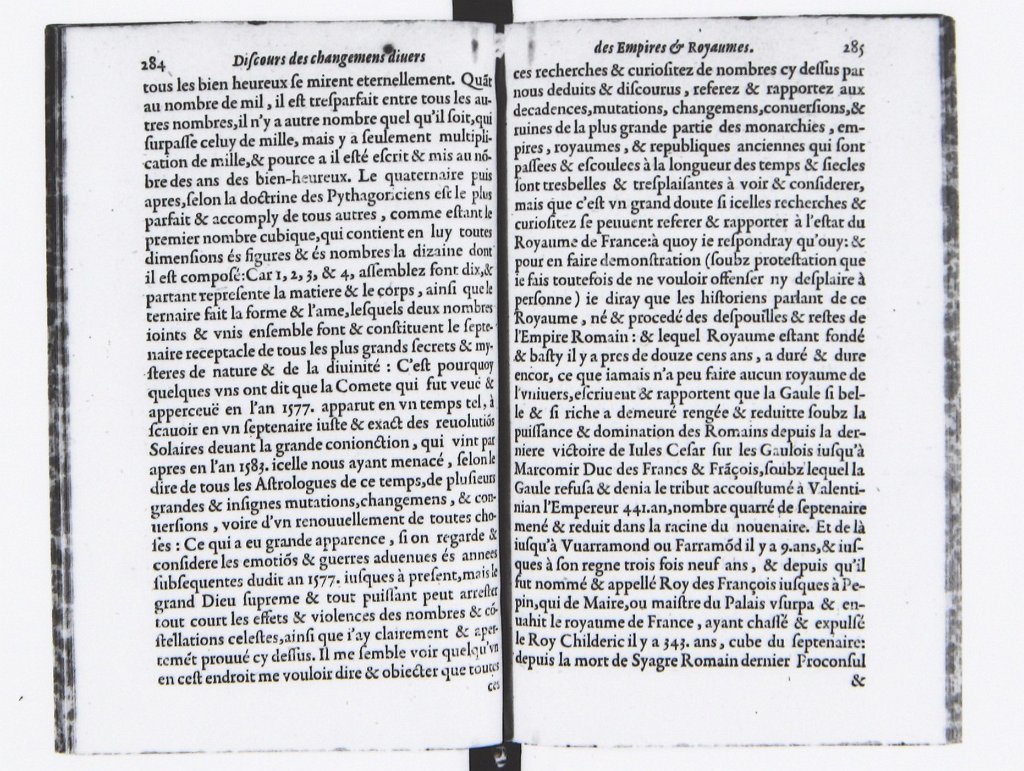 284 Diſcours des changemens diuers
tous les bien heureux ſe mirent eternellement. Quãt
au nombre de mil, il eſt treſparfait entre tous les au-
tres nombres, il n'y a autre nombre quel qu'il ſoit, qui
ſurpaſſe celuy de mille, mais y a ſeulement multipli-
cation de mille, & pource a il eſté eſcrit & mis au nõ-
bre des ans des bien-heureux. Le quaternaire puis
apres, ſelon la doctrine des Pythagoriciens eſt le plus
parfait & accomply de tous autres, comme eſtant le
premier nombre cubique, qui contient en luy toutes
dimenſions és figures & és nombres la dizaine dont
il eſt compoſé: Car 1, 2, 3, & 4, aſſemblez font dix, &
partant repreſente la matiere & le corps, ainſi que le
ternaire fait la forme & l'ame, leſquels deux nombres
ioints & vnis enſemble font & conſtituent le ſepte-
naire receptacle de tous les plus grands ſecrets & my-
ſteres de nature & de la diuinité: C'eſt pourquoy
quelques vns ont dit que la Comete qui fut veuë &
apperceuë en l'an 1577. apparut en vn temps tel, à
ſcauoir en vn ſeptenaire iuſte & exact des reuolutiõs
Solaires deuant la grande conionction, qui vint par
apres en l'an 1583. icelle nous ayant menacé, ſelon le
dire de tous les Aſtrologues de ce temps, de pluſieurs
grandes & inſignes mutations, changemens, & con-
uerſions, voire d'vn renouuellement de toutes cho-
ſes: Ce qui a eu grande apparence, ſi on regarde &
conſidere les emotiõs & guerres aduenues és annees
ſubſequentes dudit an 1577. iuſques à preſent, mais le
grand Dieu ſupreme & tout puiſſant peut arreſter
tout court les effets & violences des nombres & cõ-
ſtellations celeſtes, ainſi que i'ay clairement & aper-
temẽt prouué cy deſſus. Il me ſemble voir quelqu'vn
en ceſt endroit me vouloir dire & obiecter que toutes
ces
des Empires & Royaumes. 285
ces recherches & curioſitez de nombres cy deſſus par
nous deduits & diſcourus, referez & rapportez aux
decadences, mutations, changemens, conuerſions, &
ruines de la plus grande partie des monarchies, em-
pires, royaumes, & republiques anciennes qui ſont
paſſees & eſcoulees à la longueur des temps & ſiecles
ſont tresbelles & treſplaiſantes à voir & conſiderer,
mais que c'eſt vn grand doute ſi icelles recherches &
curioſitez ſe peuuent referer & rapporter à l'eſtat du
Royaume de France: à quoy ie reſpondray qu'ouy: &
pour en faire demonſtration (ſoubz proteſtation que
ie fais toutefois de ne vouloir offenſer ny deſplaire à
perſonne) ie diray que les hiſtoriens parlant de ce
Royaume, né & procedé des deſpouilles & reſtes de
l'Empire Romain: & lequel Royaume eſtant fondé
& baſty il y a pres de douze cens ans, a duré & dure
encor, ce que iamais n'a peu faire aucun royaume de
l'vniuers, eſcriuent & rapportent que la Gaule ſi bel-
le & ſi riche a demeuré rengée & reduitte ſoubz la
puiſſance & domination des Romains depuis la der-
niere victoire de Iules Ceſar ſur les Gaulois iuſqu'à
Marcomir Duc des Francs & Frãçois, ſoubz lequel la
Gaule refuſa & denia le tribut accouſtumé à Valenti-
nian l'Empereur 441. an, nombre quarré de ſeptenaire
mené & reduit dans la racine du nouenaire. Et de là
iuſqu'à Vuarramond ou Farramõd il y a 9. ans, & iuſ-
ques à ſon regne trois fois neuf ans, & depuis qu'il
fut nommé & appellé Roy des François iuſques à Pe-
pin, qui de Maire, ou maiſtre du Palais vſurpa & en-
uahit le royaume de France, ayant chaſſé & expulſé
le Roy Childeric il y a 343. ans, cube du ſeptenaire:
depuis la mort de Syagre Romain dernier Proconſul
&